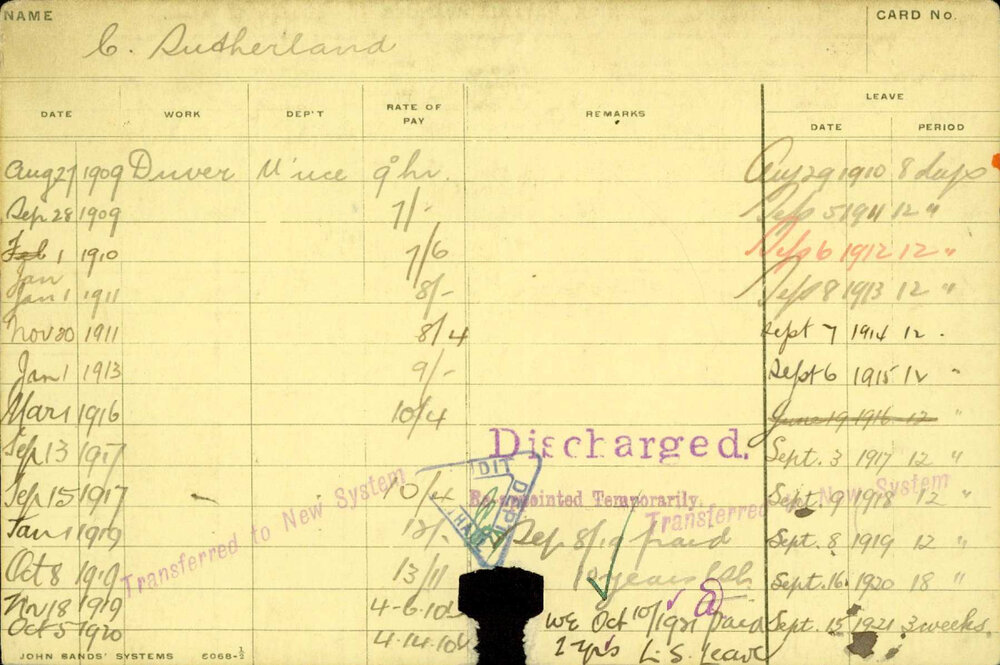 NAME
C. Sutherland
CARD NO.
DATE WORK DEP'T RATE OF PAY REMARKS LEAVE DATE PERIOD
Aug 27 1909 Driver hr. Aug 29 1910 8 days
Sep 28 1909 7/- Sep 5 1911 12 "
Feb 1 1910 7/6 Sep 6 1912 12 "
Jan
Jan 1 1911 8/- Sep 8 1913 12 "
Nov 20 1911 8/4 Sept 7 1914 12 "
Jan 1 1913 9/- Sept 6 1915 12 "
Mar 1 1916 10/4 June 19 1916 12 "
Discharged.
Sep 13 1917 Sept. 3 1917 12 "
Sep 15 1917 10/4 Re-appointed Temporarily. Sept. 9 1918 12 "
Transferred to New System
Transferred New System
Jan 1 1919 12/. Sep 8/19 paid Sept. 8 1919 12 "
Oct 8 1919 13/11 10 years Sept. 16 1920 18 "
Nov 18 1919 4-6-10 WE Oct 10/1921 paid Sept. 15 1921 3 weeks.
Oct 5 1920 4-14-10 2 yrs L.S. Leave
JOHN SANDS' SYSTEMS 6068-½